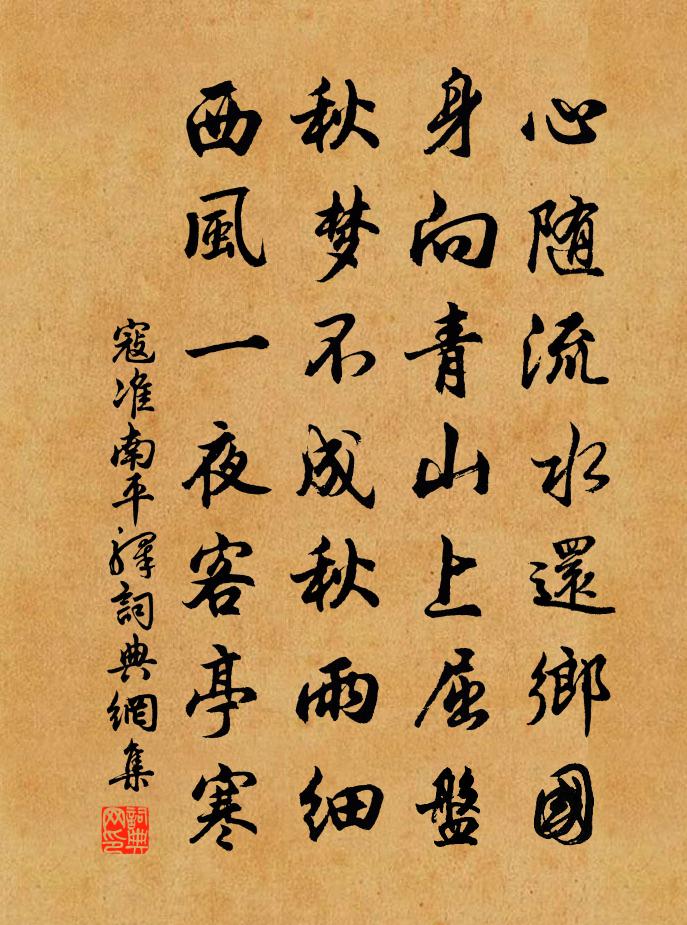 心随流水還鄉國
身向青山上屈盤
秋梦不成秋雨细
西風一夜客亭寒
寇准南平驛詞典網集
詞典网印